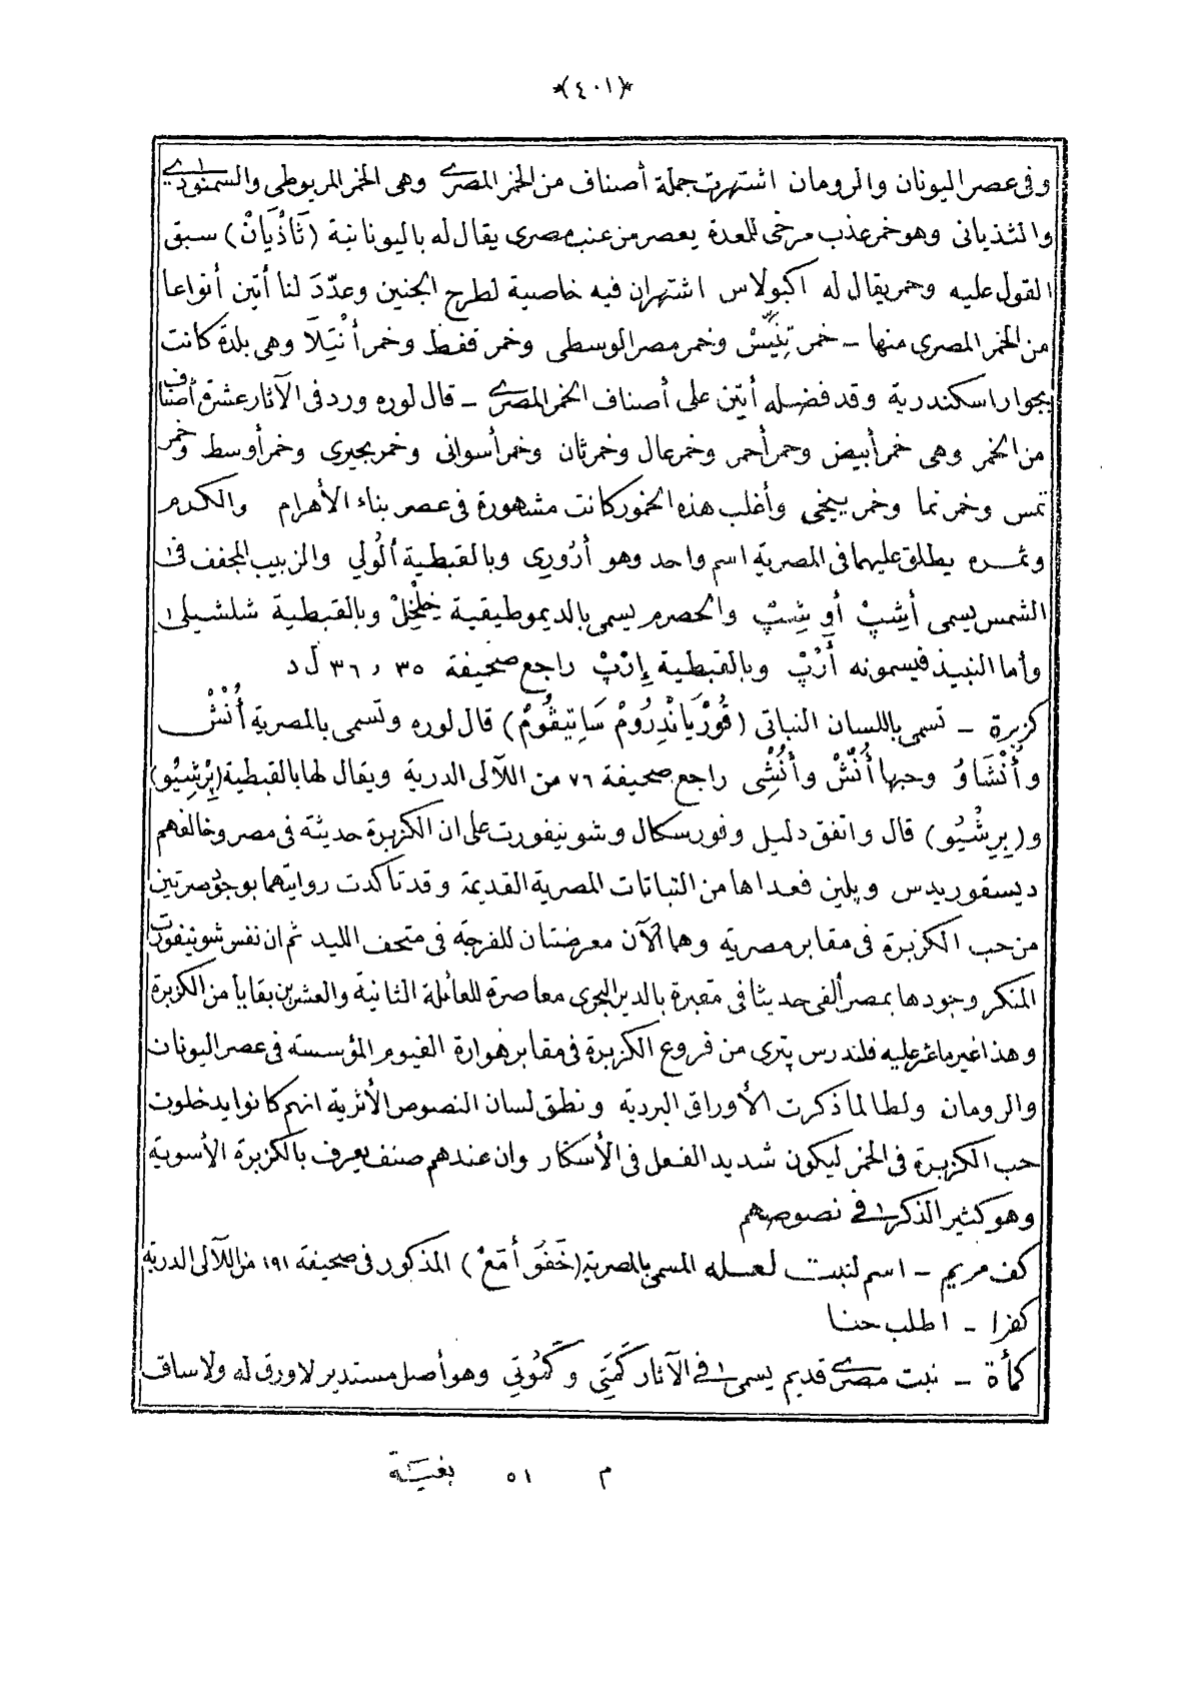 *(٤٠١)*
وفى عصر اليونان والرومان اشتهرت جملة أصناف من الخمر المصرى وهى الخمر المريوطى والسمنودى
والثذيانى وهو خمر عذب مرخى للمعدة يعصر من عنب مصرى يقال له باليونانية (ثَاذْيَانْ) سبق
القول عليه وخمر يقال له اكبولاس اشتهر ان فيه خاصية لطرح الجنين وعدّدَ لنا أتين أنواعا
من الخمر المصرى منها - خمر تِنِّيسْ وخمر مصر الوسطى وخمر قفط وخمر أنْتِلَا وهى بلدة كانت
بجوار اسكندرية وقد فضله أتين على أصناف الخمر المصرى - قال لوره ورد فى الآثار عشرة أصناف
من الخمر وهى خمر أبيض وخمر أحمر وخمر عال وخمر ثان وخمر أسوانى وخمر بحيرى وخمر أوسط وخمر
تمس وخمر تما وخمر بيخى وأغلب هذه الخمور كانت مشهورة فى عصر بناء الأهرام والكرم
وثمره يطلق عليهما فى المصرية اسم واحد وهو أرُورِى وبالقبطية ألُولي والزبيب المجفف فى
الشمس يسمى أشِبْ أو شِبْ والحصرم يسمى بالديموطيقية خِلْخِلْ وبالقبطية شلشيلى
وأما النبيذ فيسمونه أرْبْ وبالقبطية إرْبْ راجع صحيفة ٣٥ , ٣٦ ل د
كزبرة - تسمى باللسان النباتى (قُورْيَانْدِرُومْ سَاتِيڤُومْ) قال لوره وتسمى بالمصرية أُنْشْ
و أُنْشَاوُ وحبها أُنْشْ وأُنْشِى راجع صحيفة ٧٦ من اللآلى الدرية ويقال لها بالقبطية (بِرْشِيُو)
و (بِرِشْيُو) قال واتفق دليل وفورسكال وشوينفورت على ان الكزبرة حديثة فى مصر وخالفهم
ديسقوريدس وپلين فعداها من النباتات المصرية القديمة وقد تأكدت روايتهما بوجود صرتين
من حب الكزبرة فى مقابر مصرية وهما الآن معرضتان للفرجة فى متحف الليد ثم ان نفس شوينفورت
المنكر وجودها بمصر ألفى حديثا فى مقبرة بالدير البحرى معاصرة للعائلة الثانية والعشرين بقايا من الكزبرة
وهذا غير ما عثر عليه فلندرس پترى من فروع الكزبرة فى مقابر هوارة الفيوم المؤسسة فى عصر اليونان
والرومان ولطالما ذكرت الأوراق البردية ونطق لسان النصوص الأثرية انهم كانوا يدخلون
حب الكزبرة فى الخمر ليكون شديد الفعل فى الأسكار وان عندهم صنف يعرف بالكزبرة الأسوية
وهو كثير الذكر فى نصوصهم
كف مريم - اسم لنبت لعله المسمى بالمصرية (خَفَوُ أمَعْ) المذكور فى صحيفة ١٩١ من اللآلى الدرية
كفرا - اطلب حنا
كمأة - نبت مصرى قديم يسمى فى الآثار كَمَتِي و كَمُوتِي وهو أصل مستدير لا ورق له ولا ساق
م ٥١ بغية